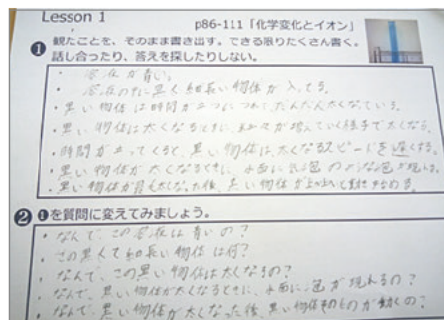 Lesson 1
p86-111「化学変化とイオン」
❶ 観たことを、そのまま書き出す。できる限りたくさん書く。
話し合ったり、答えを探したりしない。
・溶液が青い。
・溶液の中に黒く細長い物体が入ってる。
・黒い物体は時間が立つにつれて、だんだん太くなっている。
・黒い物体は太くなるときに、粒々が増えていく様子で太くなる。
・時間が立ってくると、黒い物体は、太くなるスピードを遅くする。
・黒い物体が太くなるときに、水面に気泡のような泡が現れる。
・黒い物体が太くなった後、黒い物体が動き始める。
❷ ❶を質問に変えてみましょう。
・なんで、この溶液は青いの?
・この黒くて細長い物体は何?
・なんで、この黒い物体は太くなるの?
・なんで、黒い物体が太くなるときに、水面に泡が現れるの?
・なんで、黒い物体が太くなった後、黒い物体そのものが動くの?